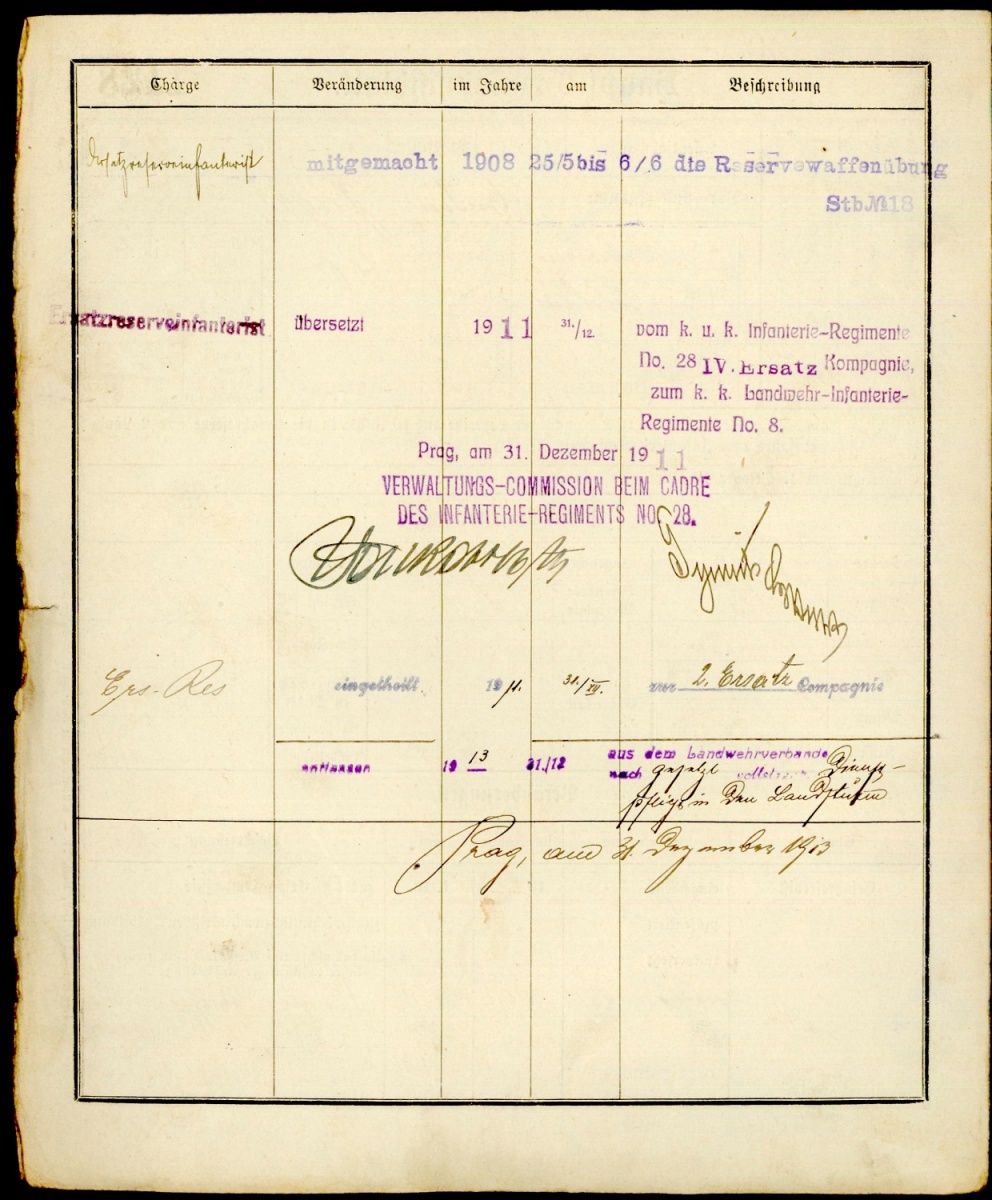 Chàrge Veränderung im Jahre am Beschreibung
Ersatzreserveinfanterist mitgemacht 1908 25/5 bis 6/6 die Reservewaffenübung
Stb.№18
Ersatzreserveinfanterist übersetzt 1911 31./12. vom k. u. k. Infanterie-Regimente
No. 28 IV. Ersatz Kompagnie,
zum k. k. Landwehr-Infanterie-
Regimente No. 8.
Prag, am 31. Dezember 1911
VERWALTUNGS-COMMISSION BEIM CADRE
DES INFANTERIE-REGIMENTS NO. 28.
Ers. Res eingetheilt 1911. 31./XII. zur 2. Ersatz Compagnie
entlassen 1913 31./12 aus dem Landwehrverbande
nach gesetzl vollstr. Dienst-
pflicht in den Landsturm
Prag, am 31. Dezember 1913